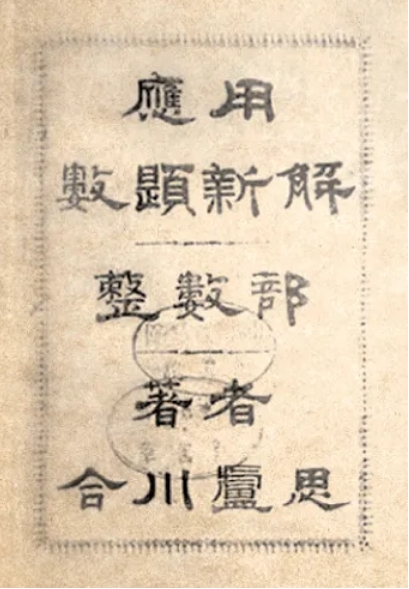 應用
數題新解
整數部
著者
合川盧思